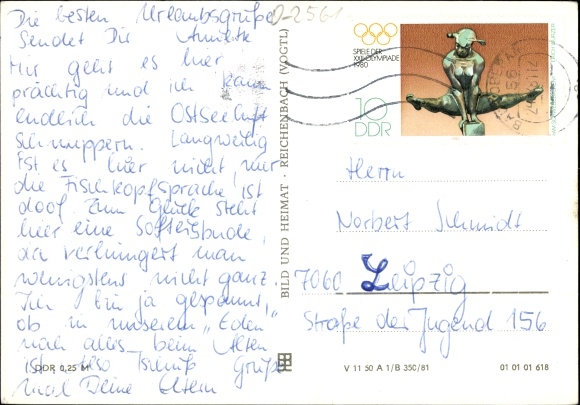 Die besten Urlaubsgrüße
0-2561
Sendet Dir Annette
Mir geht es hier
prächtig und ich kann
endlich die Ostseeluft
schnuppern. Langweilig
ist es hier nicht, nur
die Fischkopfsprache ist
doof. Zum Glück steht
hier eine Softeisbude,
da verhungert man
wenigstens nicht ganz.
Ich bin ja gespannt,
ob in unserem „Eden"
noch alles beim Alten
ist. Also Tschüß Grüß
mal Deine Eltern
DDR 0,25 M
BILD UND HEIMAT · REICHENBACH (VOGTL)
SPIELE DER
XXII. OLYMPIADE
1980
10
DDR
Herrn
Norbert Schmidt
7060 Leipzig
Straße der Jugend 156
V 11 50 A 1/B 350/81
01 01 01 618